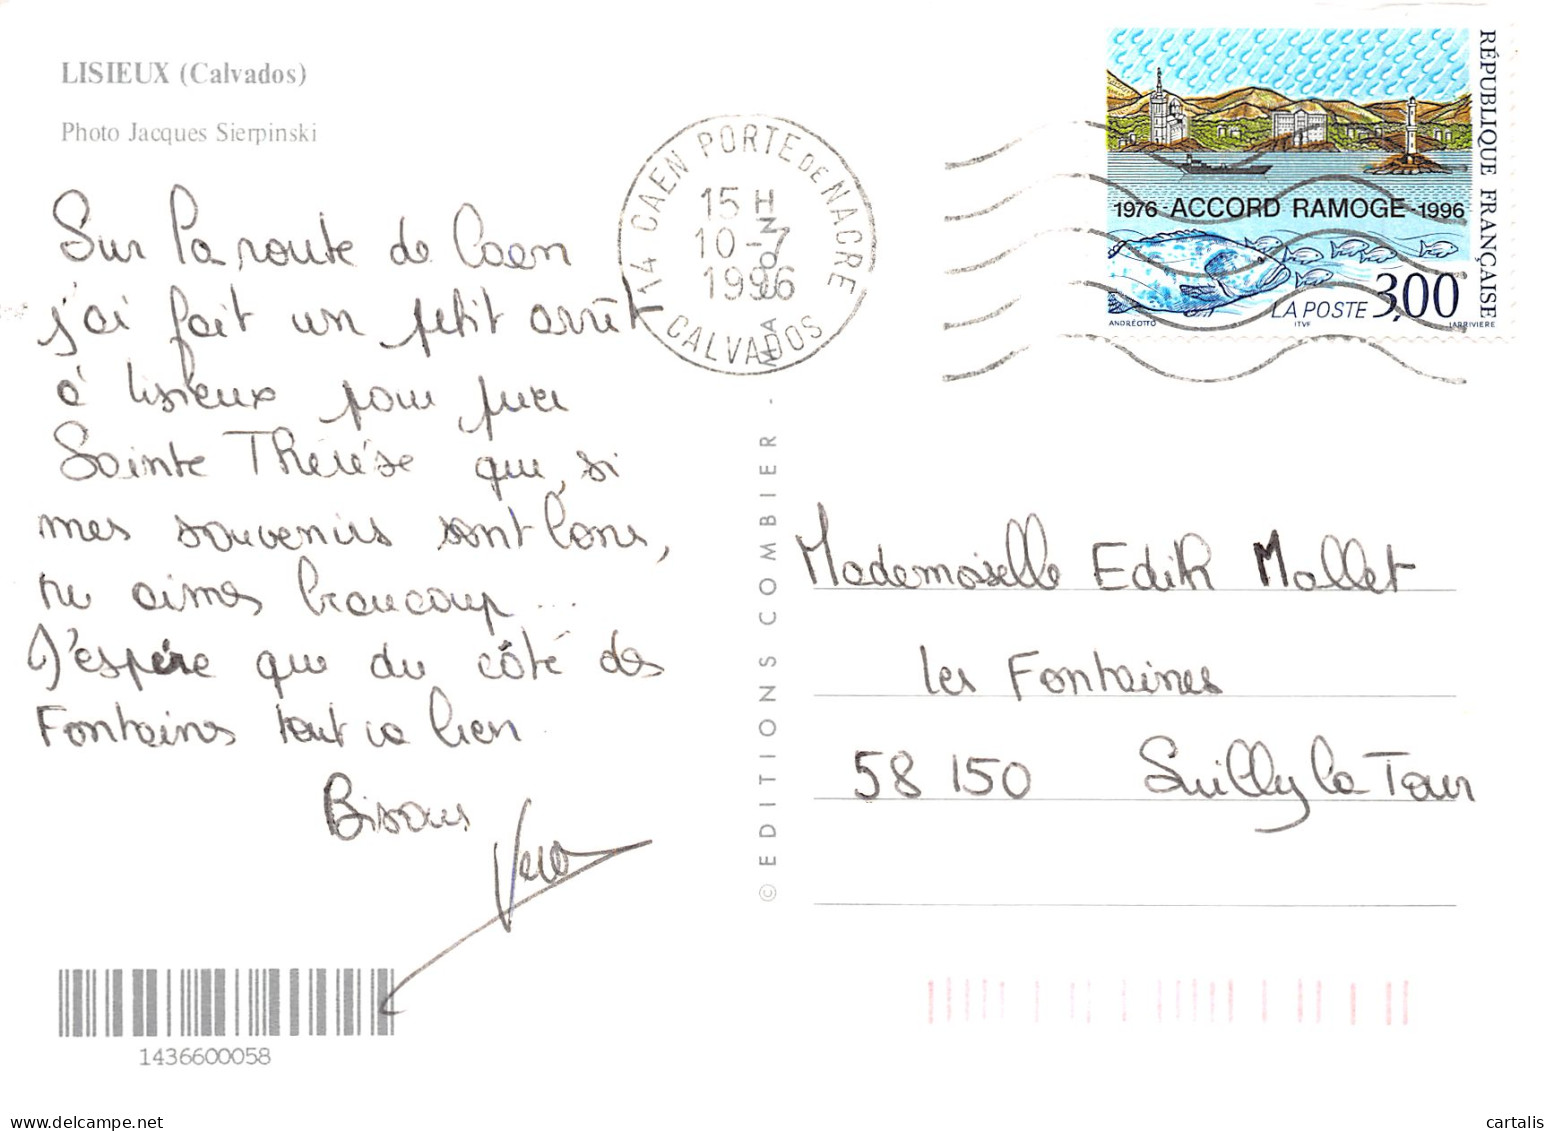 LISIEUX (Calvados)
Photo Jacques Sierpinski
Sur la route de Caen
j'ai fait un petit arrêt
à Lisieux pour
Sainte Thérèse que, si
mes souvenirs sont bons,
tu aimes beaucoup...
J'espère que du côté des
Fontaines tout va bien
Bisous
Vero
1436600058
© EDITIONS COMBIER -
14 CAEN PORTE DE NACRE
15 H
10-7
1996
CALVADOS
RÉPUBLIQUE FRANÇAISE
1976 - ACCORD RAMOGE - 1996
LA POSTE 3,00
ANDRÉOTTO ITVF LARRIVIÈRE
Mademoiselle Edith Mallet
les Fontaines
58 150 Suilly la Tour
www.cartalis.com
cartalis